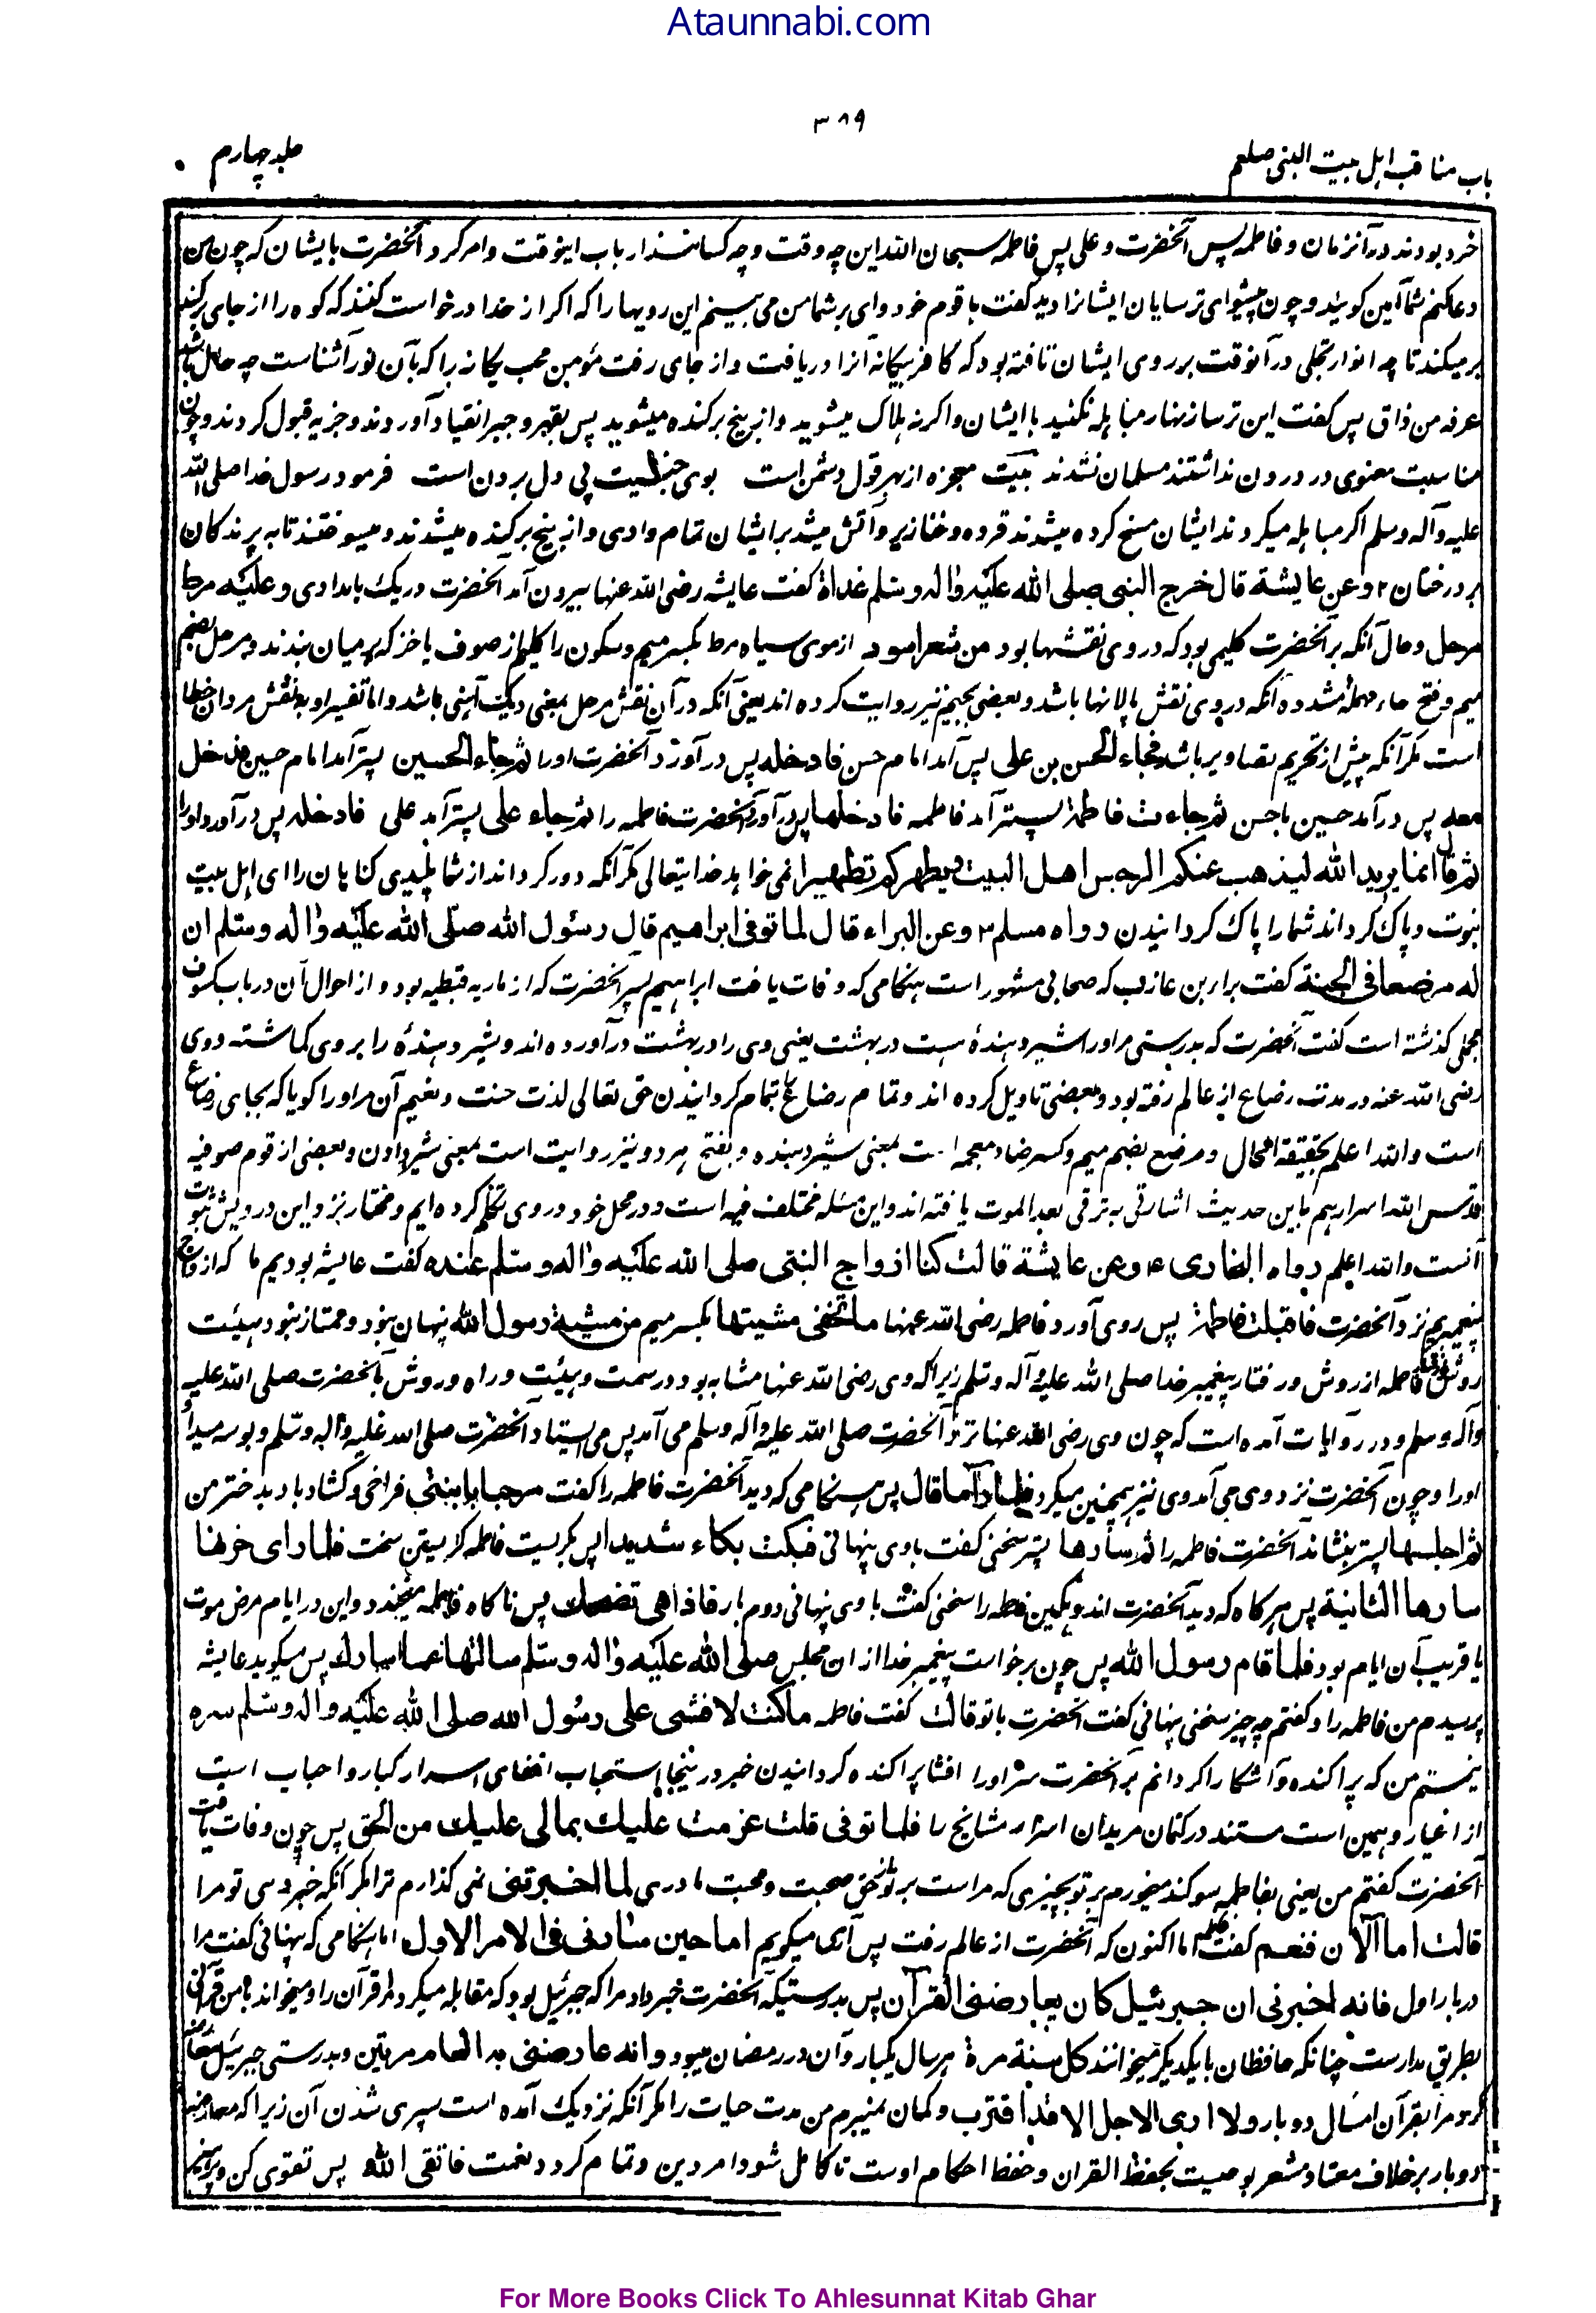 Ataunnabi.com
۳۸۹
باب مناقب اہل بیت النبی صلعم
جلد چہارم
خرد بودند در آنزمان و فاطمہ پس آنحضرت و علی پس فاطمہ سبحان اللہ این چہ وقت و چہ کسانند ارباب اینوقت و امر کرد آنحضرت بایشان کہ چون من
دعا کنم شما آمین گوئید و چون پیشوای ترسایان ایشانرا دید گفت با قوم خود وای بر شما من می بینم این رویہا را کہ اگر از خدا درخواست کنند کہ کوہ را از جای برکند
بر میکند تا چہ انوار تجلی در آنوقت بر روی ایشان تافتہ بود کہ کافر بیگانہ آنرا دریافت و از جای رفت مؤمن محب یگانہ را کہ بآن نور آشناست چہ حال باشد
عرفہ من ذاق پس گفت این ترسا زنہار مباہلہ نکنید با ایشان و اگرنہ ہلاک میشوید و از بیخ برکندہ میشوید پس بقہر و جبر انقیاد آوردند و جزیہ قبول کردند و چون
مناسبت معنوی در درون نداشتند مسلمان نشدند بیت معجزہ از بہر قول دشمن است بوی جنسیت پی دل بردن است فرمود رسول خدا صلی اللہ
علیہ و آلہ وسلم اگر مباہلہ میکردند ایشان مسخ کردہ میشدند قردہ و خنازیر و آتش میشد بر ایشان تمام وادی و از بیخ برکندہ میشدند و میسوختند تا بہ پرندگان
بر درختان ۲ وعن عایشة قال خرج النبی صلی الله علیه واله وسلم غداة گفت عایشہ رضی اللہ عنہا بیرون آمد آنحضرت در یک بامدادی وعلیه مرط
مرحل و حال آنکہ بر آنحضرت گلیمی بود کہ در وی نقشہا بود من شعر اسود از موی سیاہ مرط بکسر میم و سکون را گلیم از صوف یا خز کہ بر میان بندند و مرحل بضم
میم و فتح حاء مہملہ مشددہ آنکہ در وی نقش پالانہا باشد و بعضی بجیم نیز روایت کردہ اند یعنی آنکہ در آن نقش مرجل بمعنی دیگ آہنی باشد و اما تفسیر او بنقش مردان خطا
است مگر آنکہ پیش از تحریم تصاویر باشد فجاء الحسن بن علی پس آمد امام حسن فادخله پس در آورد آنحضرت او را ثم جاء الحسین پستر آمد امام حسین فدخل
معه پس در آمد حسین با حسن ثم جاءت فاطمة پستر آمد فاطمہ فادخلها پس در آورد آنحضرت فاطمہ را ثم جاء علی پستر آمد علی فادخله پس در آورد او را
ثم قال انما یرید الله لیذهب عنکم الرجس اهل البیت ویطهرکم تطهیرا نمی خواہد خدا یتعالی مگر آنکہ دور گرداند از شما پلیدی گناہان را ای اہل بیت
نبوت و پاک گرداند شما را پاک گردانیدن رواه مسلم ۳ وعن البراء قال لما توفی ابراهیم قال رسول الله صلی الله علیه واله وسلم ان
له مرضعا فی الجنة گفت براء بن عازب کہ صحابی مشہور است ہنگامی کہ وفات یافت ابراہیم پسر آنحضرت کہ از ماریہ قبطیہ بود و از احوال آن در باب کسوف
مجملی گذشتہ است گفت آنحضرت کہ بدرستی مر او را شیر دہندۂ ہست در بہشت یعنی وی را در بہشت در آوردہ اند و شیر دہندۂ را بر وی گماشتہ و وی
رضی اللہ عنہ در مدت رضاع از عالم رفتہ بود و بعضی تاویل کردہ اند و تمام رضاع بتمام گردانیدن حق تعالی لذت جنت و نعیم آن مر او را گویا کہ بجای رضاع
است واللہ اعلم بحقیقة الحال و مرضع بضم میم و کسر ضاد معجمہ است بمعنی شیر دہندہ و بفتح ہر دو نیز روایت است بمعنی شیر دادن و بعضی از قوم صوفیہ
قدس اللہ اسرارہم باین حدیث اشارتی بہ ترقی بعد الموت یافتہ اند و این مسئلہ مختلف فیہ است و در محل خود در وی تکلم کردہ ایم و مختار نزد این درویش ثبوت
آنست واللہ اعلم رواه البخاری ۴ وعن عایشة قالت کنا ازواج النبی صلی الله علیه واله وسلم عنده گفت عایشہ بودیم ما کہ ازواج
پیغمبریم نزد آنحضرت فاقبلت فاطمة پس روی آورد فاطمہ رضی اللہ عنہا ما تخفی مشیتها بکسر میم من مشیة رسول الله پنہان نبود و ممتاز نبود ہیئت
روش فاطمہ از روش و رفتار پیغمبر خدا صلی اللہ علیہ و آلہ وسلم زیرا کہ وی رضی اللہ عنہا مشابہ بود در سمت و ہیئت و راہ و روش بآنحضرت صلی اللہ علیہ
و آلہ وسلم و در روایات آمدہ است کہ چون وی رضی اللہ عنہا نزد آنحضرت صلی اللہ علیہ و آلہ وسلم می آمد پس می ایستاد آنحضرت صلی اللہ علیہ وآلہ وسلم و بوسہ میداد
او را و چون آنحضرت نزد وی می آمد وی نیز ہمچنین میکرد فلما رآها قال پس ہنگامی کہ دید آنحضرت فاطمہ را گفت مرحبا بابنتی فراخی و کشاد باد بدختر من
ثم اجلسها پستر بنشاند آنحضرت فاطمہ را ثم سارها پستر سخنی گفت با وی پنہانی فبکت بکاء شدیدا پس بگریست فاطمہ گریستن سخت فلما رای حزنها
سارها الثانیة پس ہرگاہ کہ دید آنحضرت اندوہگین فاطمہ را سخنی گفت با وی پنہانی دوم بار فاذا هی تضحک پس ناگاہ فاطمہ میخندد و این در ایام مرض موت
یا قریب آن ایام بود فلما قام رسول الله پس چون برخواست پیغمبر خدا از ان مجلس صلی الله علیه واله وسلم سالتها عما سارک پس میگوید عایشہ
پرسیدم من فاطمہ را و گفتم چہ چیز سخنی پنہانی گفت آنحضرت با تو قالت گفت فاطمہ ما کنت لافشی علی رسول الله صلی الله علیه واله وسلم سره
نیستم من کہ پراکندہ و آشکارا گردانم بر آنحضرت سر او را افشا پراکندہ گردانیدن خبر در ینجا استحباب اخفای اسرار کبار و احباب است
از اغیار و ہمین است مستند در کتمان مریدان اسرار مشایخ را فلما توفی قلت عزمت علیک بمالی علیک من الحق پس چون وفات یافت
آنحضرت گفتم من یعنی بفاطمہ سوگند میخورم بر تو بچیزی کہ مر است بر تو از حق صحبت و محبت مادری لما اخبرتنی نمی گذارم ترا مگر آنکہ خبر دہی تو مرا
قالت اما الآن فنعم گفت فاطمہ اما اکنون کہ آنحضرت از عالم رفت پس آری میگویم اما حین سارنی فی الامر الاول اما ہنگامی کہ پنہانی گفت مرا
در بار اول فانه اخبرنی ان جبرئیل کان یعارضنی القرآن پس بدرستیکہ آنحضرت خبر داد مرا کہ جبرئیل بود کہ مقابلہ میکرد مرا قرآن را و میخواند با من قرآن
بطریق مدارست چنانکہ حافظان با یکدیگر میخوانند کل سنة مرة ہر سال یکبار و آن در رمضان میبود وانه عارضنی به العام مرتین و بدرستی جبرئیل معارضہ
کرد مرا بقرآن امسال دو بار ولا اری الاجل الا قد اقترب و گمان نمیبرم من مدت حیات را مگر آنکہ نزدیک آمدہ است سپری شدن آن زیرا کہ معارضہ
دو بار بر خلاف معتاد مشعر بوصیت بحفظ القران و حفظ احکام اوست تا کامل شود امر دین و تمام گردد نعمت فاتقی الله پس تقوی کن و پرہیز
For More Books Click To Ahlesunnat Kitab Ghar